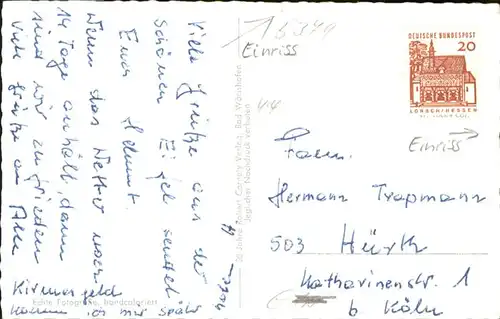 Viele Grüße aus der
schönen Eifel sendet
Euer Helmut.
Wenn das Wetter noch
14 Tage anhält dann
sind wir zufrieden
Viele Grüße an Alle
Kirmesgeld
können ich mir spät
Echte Fotografie, handcoloriert
Jeglicher Nachdruck verboten
15349
Einriss
DEUTSCHE BUNDESPOST
20
LORSCH/HESSEN
Einriss
Fam.
Hermann Trapmann
503 Hürth
Katharinenstr. 1
b. Köln